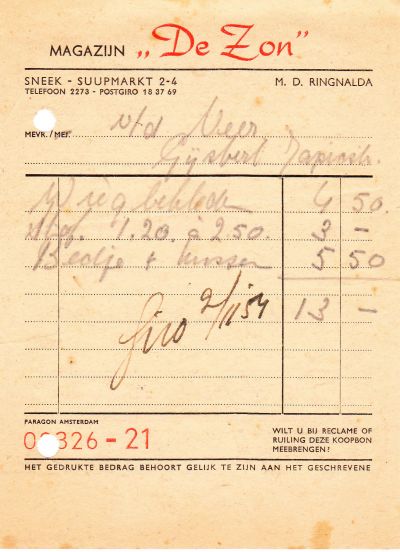 MAGAZIJN „De Zon"
SNEEK - SUUPMARKT 2-4 M. D. RINGNALDA
TELEFOON 2273 - POSTGIRO 18 37 69
MEVR./MEJ. v/d Veer
Gijsbert Japicxstr.
Wiegbeklede 4 50.
Stof. 1.20. à 2 50. 3 -
Bedje + kussen 5 50
13 -
Giro 2/11 54
PARAGON AMSTERDAM
326 - 21
WILT U BIJ RECLAME OF
RUILING DEZE KOOPBON
MEEBRENGEN?
HET GEDRUKTE BEDRAG BEHOORT GELIJK TE ZIJN AAN HET GESCHREVENE